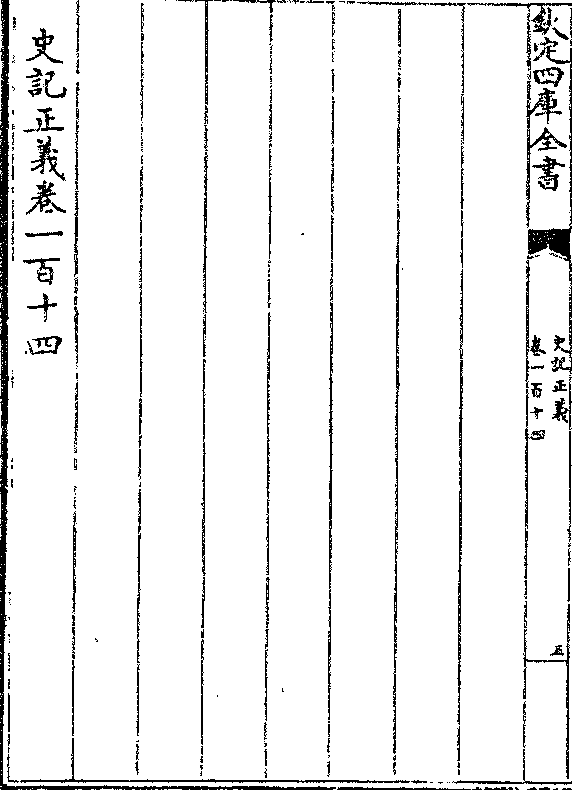 欽定四庫全書
史記正義
卷一百十四
五
史記正義卷一百十四